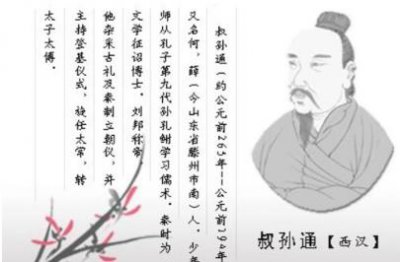 叔孙通（约公元前265年--公元前194年
又名何，薛（今山东省滕州市南）人，少年
师从孔子第九代孙孔鲋学习儒术。秦时为
文学征诏博士。刘邦称帝
他杂采古礼及秦制立朝仪，并
主持登基仪式，旋任太常，转
太子太傅。
叔孙通【西汉】